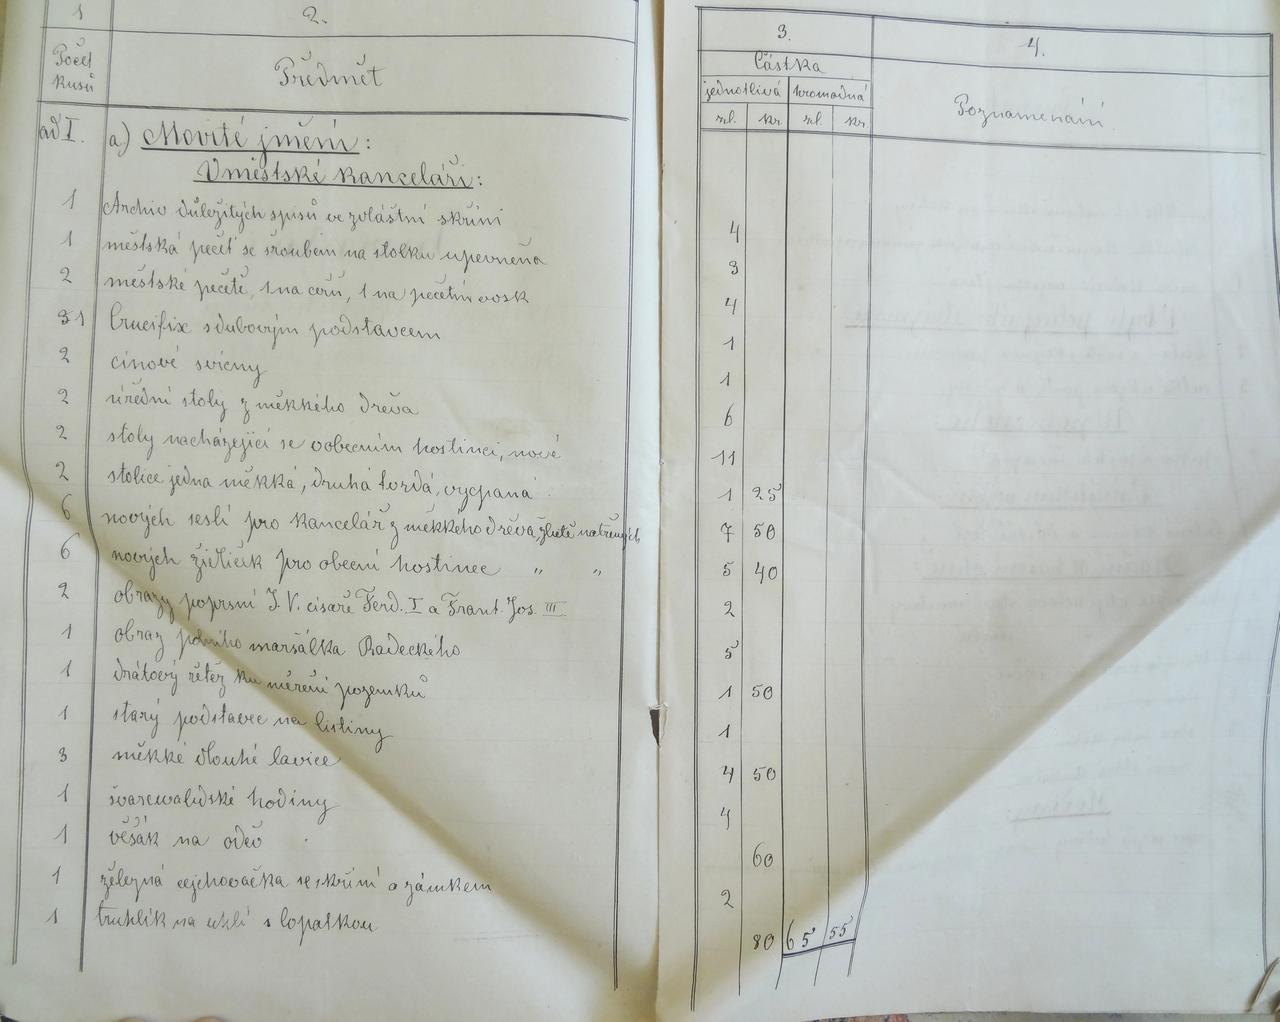 1 2. 3. 4.
Počet kusů Předmět Částka Poznamenání
jednotlivá hromadná
zl. kr. zl. kr.
ad I. a.) Movité jmění:
V městské kanceláři:
1 Archiv důležitých spisů ve zvláštní skříni 4
1 městská pečeť se šroubem na stolku upevněna 3
2 městské pečetě, 1 na čerň, 1 na pečetní vosk 4
1 Crucifix s dubovým podstavcem 1
2 cínové svícny 1
2 úřední stoly z měkkého dřeva 6
2 stoly nacházející se v obecním hostinci, nové 11
2 stolice jedna měkká, druhá tvrdá, vycpaná 1 25
6 nových seslí pro kancelář z měkkého dřeva žlutě natřených 7 50
6 nových židliček pro obecní hostinec „ „ 5 40
2 obrazy poprsní J. V. císaře Ferd. I a Frant. Jos. III 2
1 obraz polního maršálka Radeckého 5
1 drátový řetěz ku měření pozemků 1 50
1 starý podstavec na listiny 1
3 měkké dlouhé lavice 4 50
1 švarcwaldské hodiny 4
1 věšák na oděv 60
1 železná cejchovačka se skříní a zámkem 2
1 truhlík na uhlí s lopatkou 80 65 55